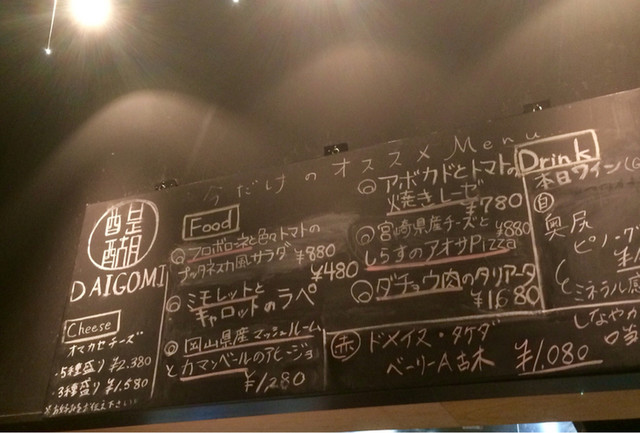 醍醐
DAIGOMI
Cheese
オマカセチーズ
・5種盛り ¥2.380
・3種盛り ¥1.580
今だけのオススメ Menu
Food
プロボローネと色々トマトの
プッタネスカ風サラダ ¥880
ミモレットと ¥480
キャロットのラペ
岡山県産マッシュルーム
とカマンベールのアヒージョ
¥1280
アボカドとトマトの
焼きレーゼ ¥780
宮崎県産チーズと ¥880
しらすのアオサPizza
ダチョウ肉のタリアータ
¥1680
赤 ドメイヌ・タケダ
ベーリーA古木 ¥1.080
Drink
本日ワイン(G
白
奥尻
ピノ・グ
ミネラル感
しなやか